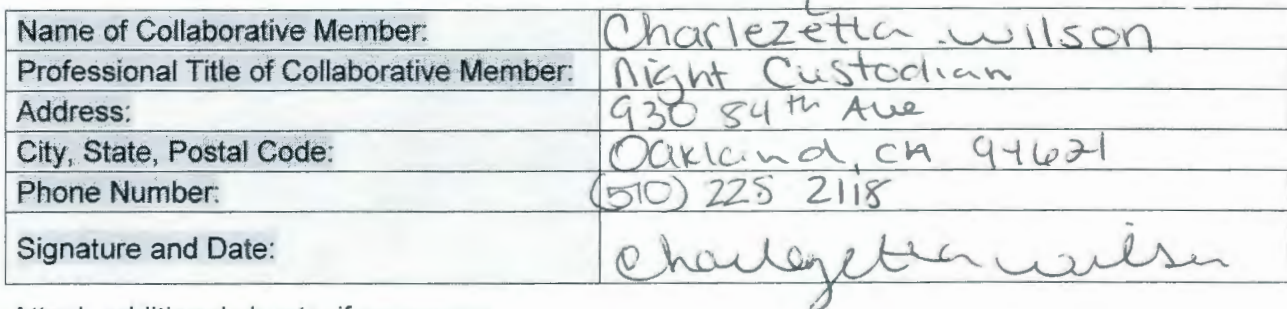 Name of Collaborative Member: Charlezetta wilson
Professional Title of Collaborative Member: Night Custodian
Address: 930 84th Ave
City, State, Postal Code: Oakland, CA 94621
Phone Number: (510) 225 2118
Signature and Date: Charlezetta wilson